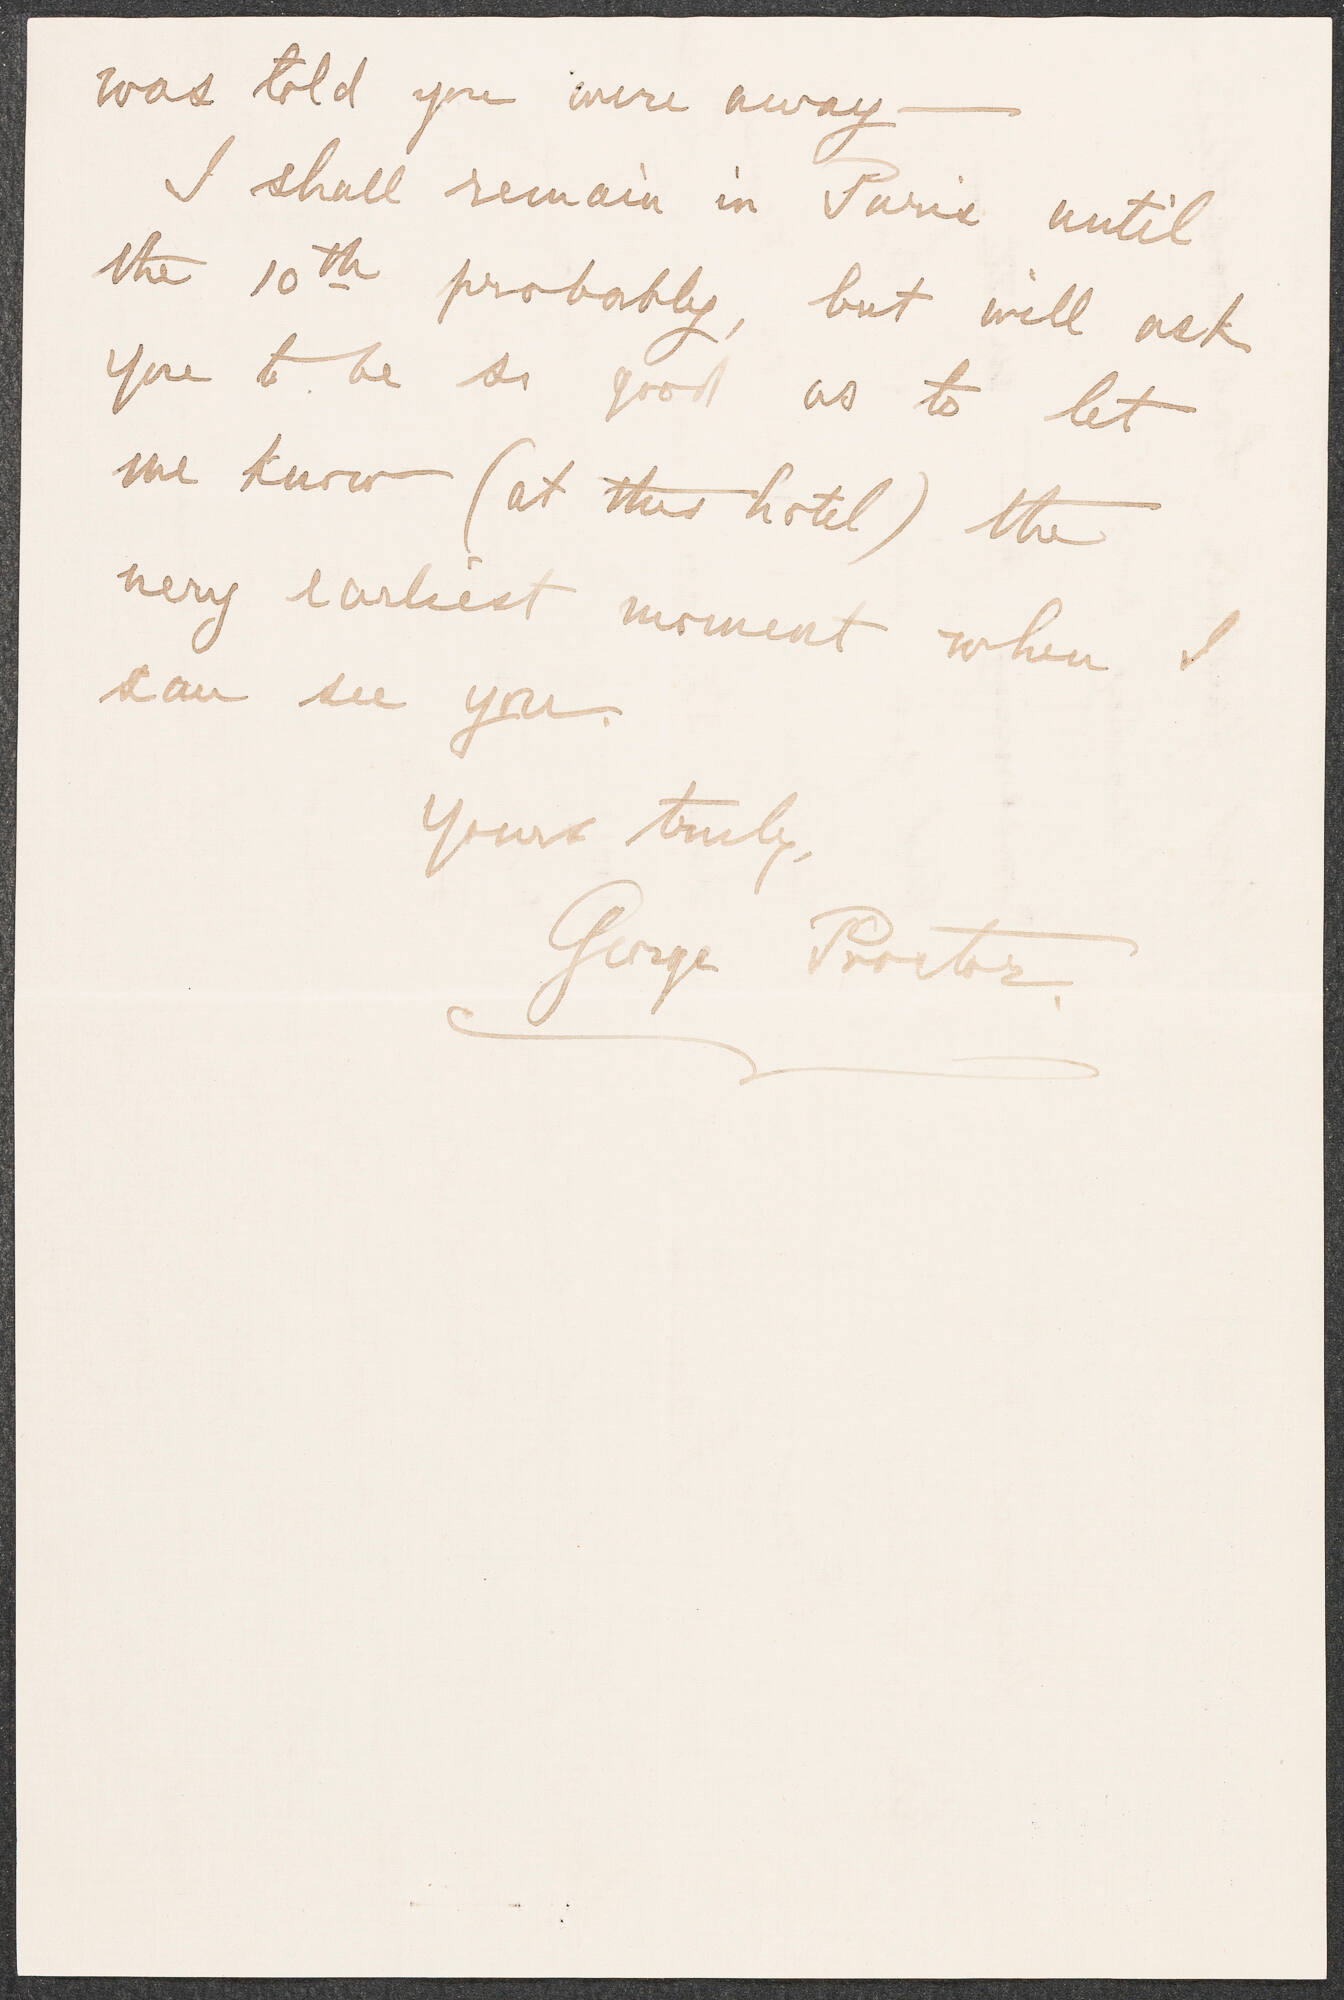 was told you were away —
I shall remain in Paris until
the 10th probably, but will ask
you to be so good as to let
me know (at this hotel) the
very earliest moment when I
can see you.
Yours truly,
George Proctor.